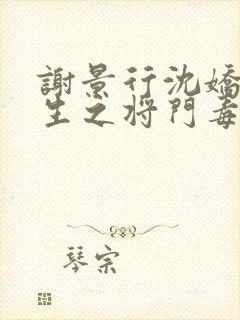 謝景行沈嬌
生之將門毒
琴宗